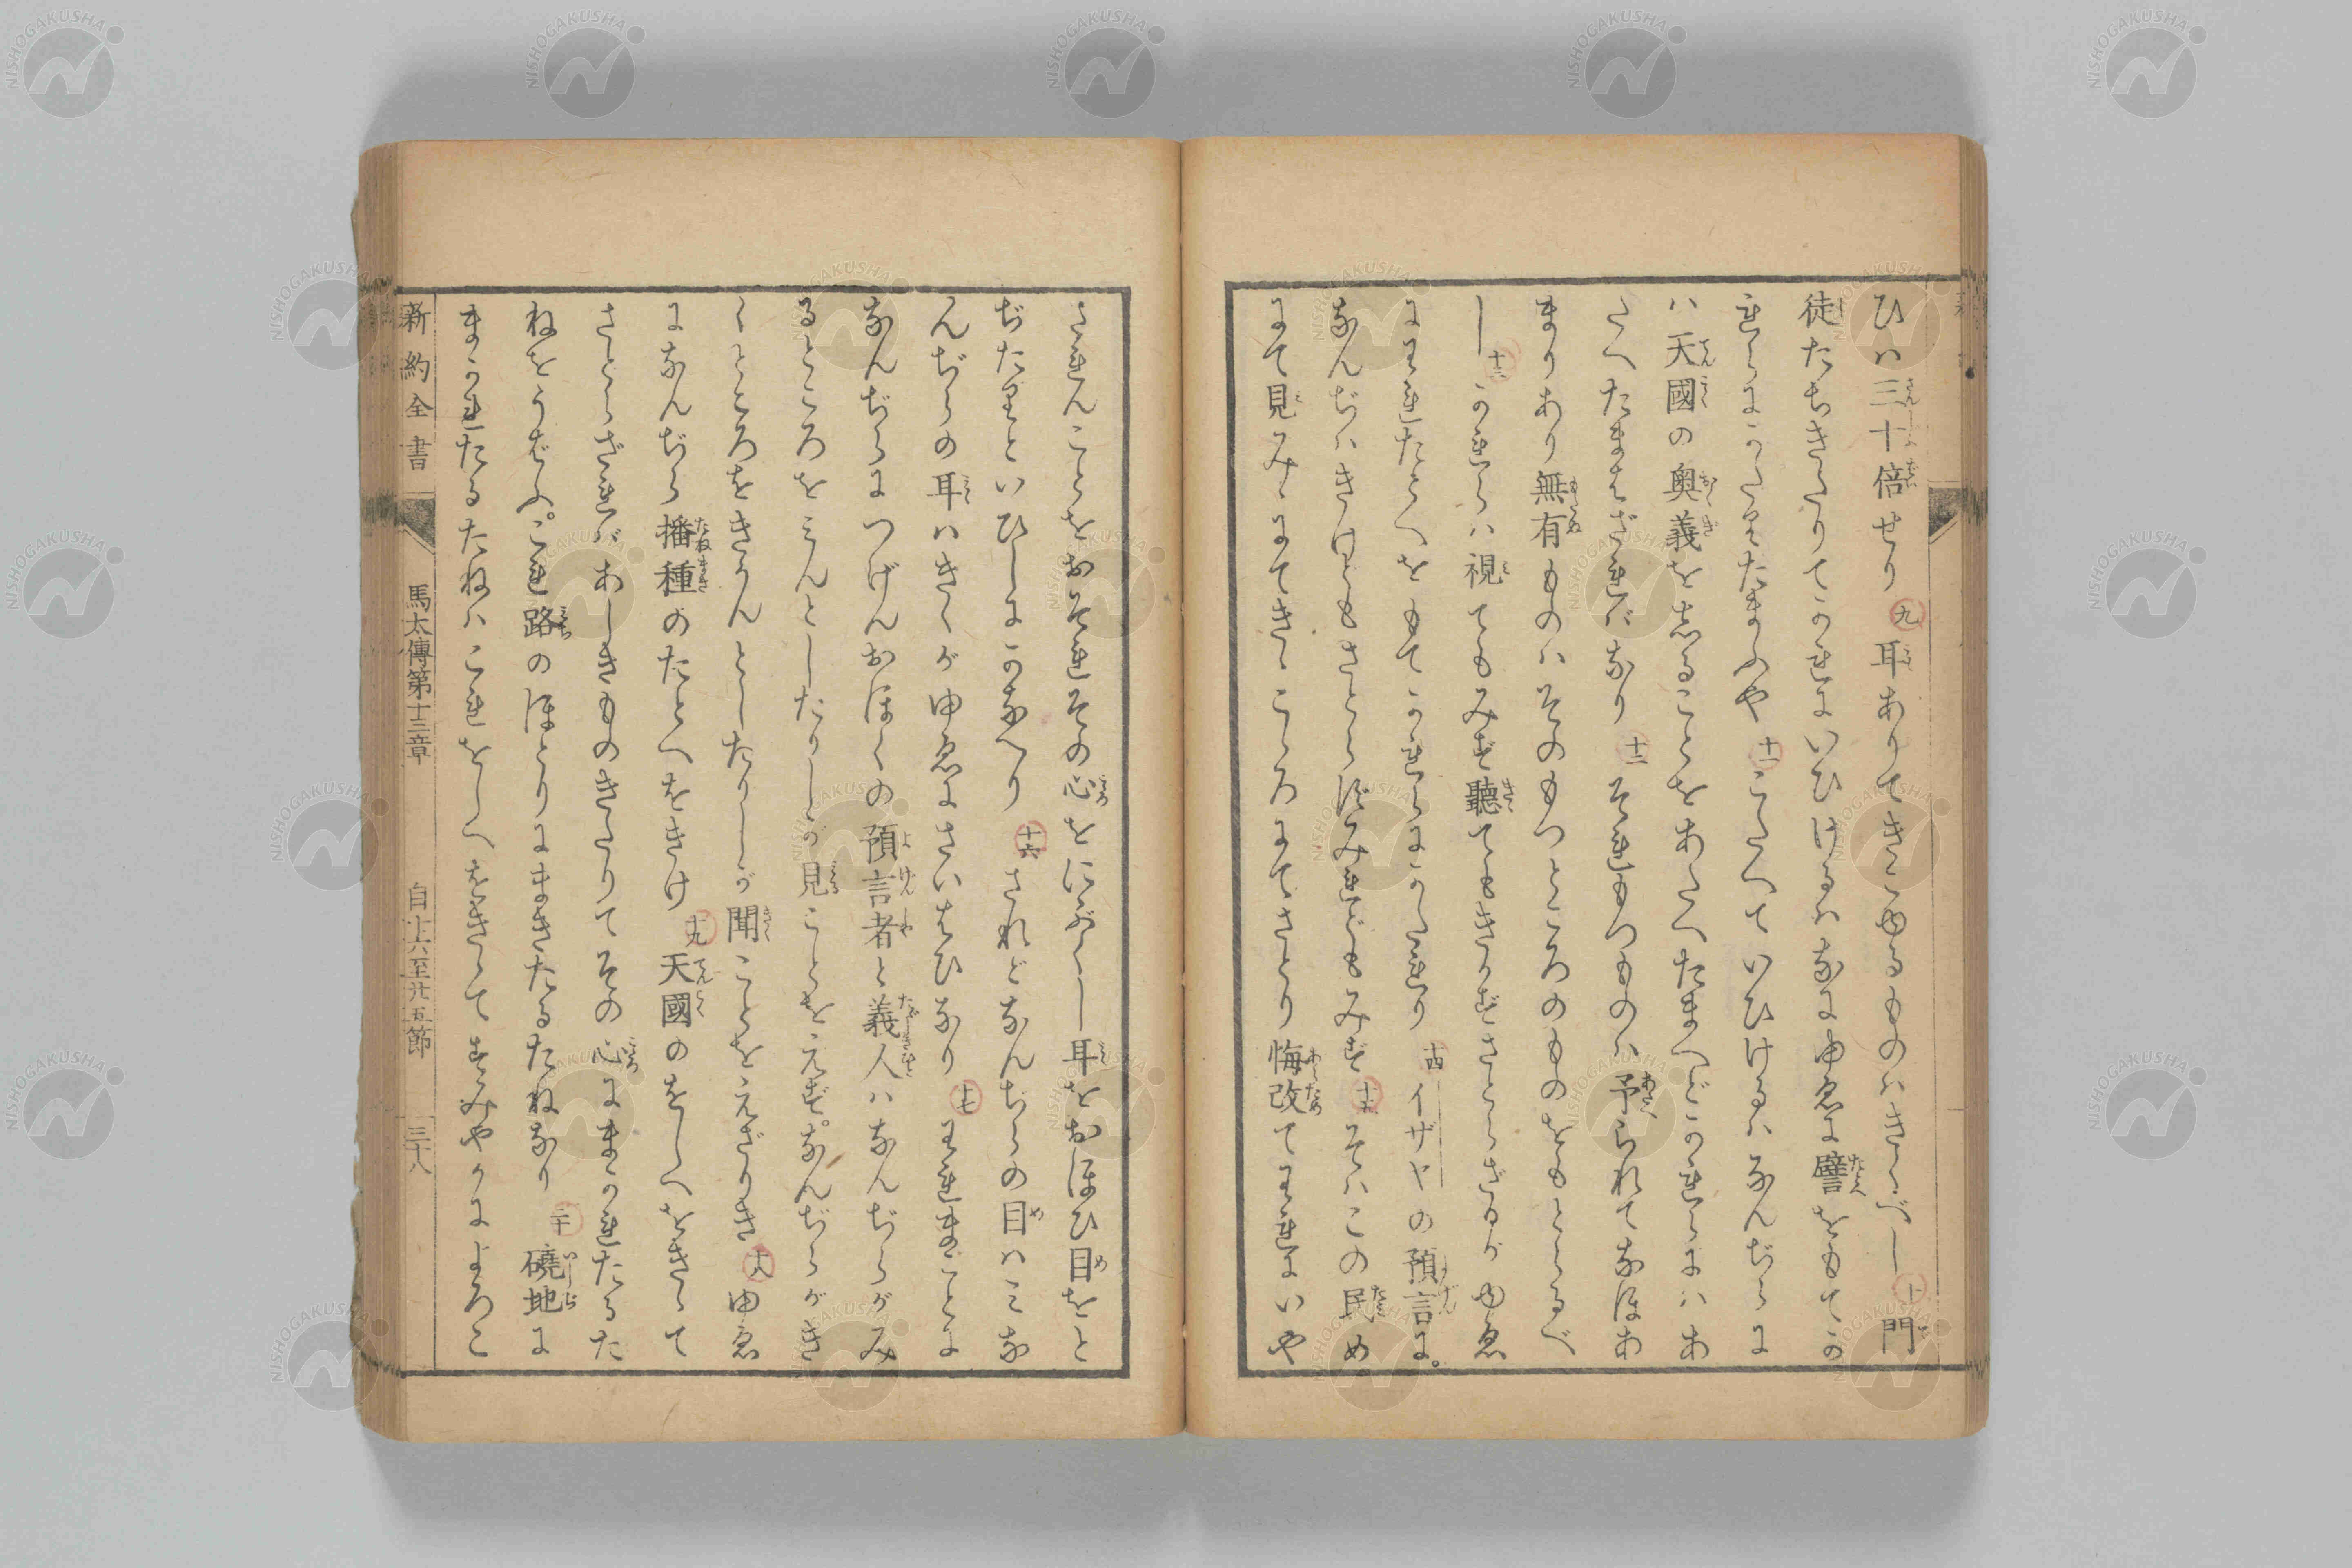 ひハ三十倍せり九耳ありてきこゆるものハきくべし十門
徒たちきたりてかれにいひけるハなにゆゑに譬をもてか
れらにかたりたまふや十一こたへていひけるハなんぢらに
ハ天國の奥義をしることをあたへたまへどかれらにハあ
たへたまはざれバなり十二それもつものハ予られてなほあ
まりあり無有ものハそのもつところのものをもとらるべ
し十三かれらハ視てもみず聽てもきかずさとらざるがゆゑ
にわれたとへをもてかれらにかたれり十四イザヤの預言に。
なんぢハきけどもさとらずみれどもみず十五そハこの民め。
にて見みゝにてきゝこゝろにてさとり悔改てわれにいや
されんことをおそれその心をにぶくし耳をおほひ目をと
ぢたりといひしにかなへり十六されどなんぢらの目ハミな
んぢらの耳ハきくがゆゑにさいはひなり十七われまことに
なんぢらにつげんおほくの預言者と義人ハなんぢらがみ
るところをミんとしたりしが見ことをえず。なんぢらがき
くところをきかんとしたりしが聞ことをえざりき十八ゆゑ
になんぢら播種のたとへをきけ十九天國のをしへをきゝて
さとらざれバあしきものきたりてその心にまかれたるた
ねをうばふ。これ路のほとりにまきたるたねなり二十磽地に
まかれたるたねハこれをしへをきゝてすみやかによろこ
新約全書
馬太傳第十三章
自十六至廿五節
三十八
NISHOGAKUSHA